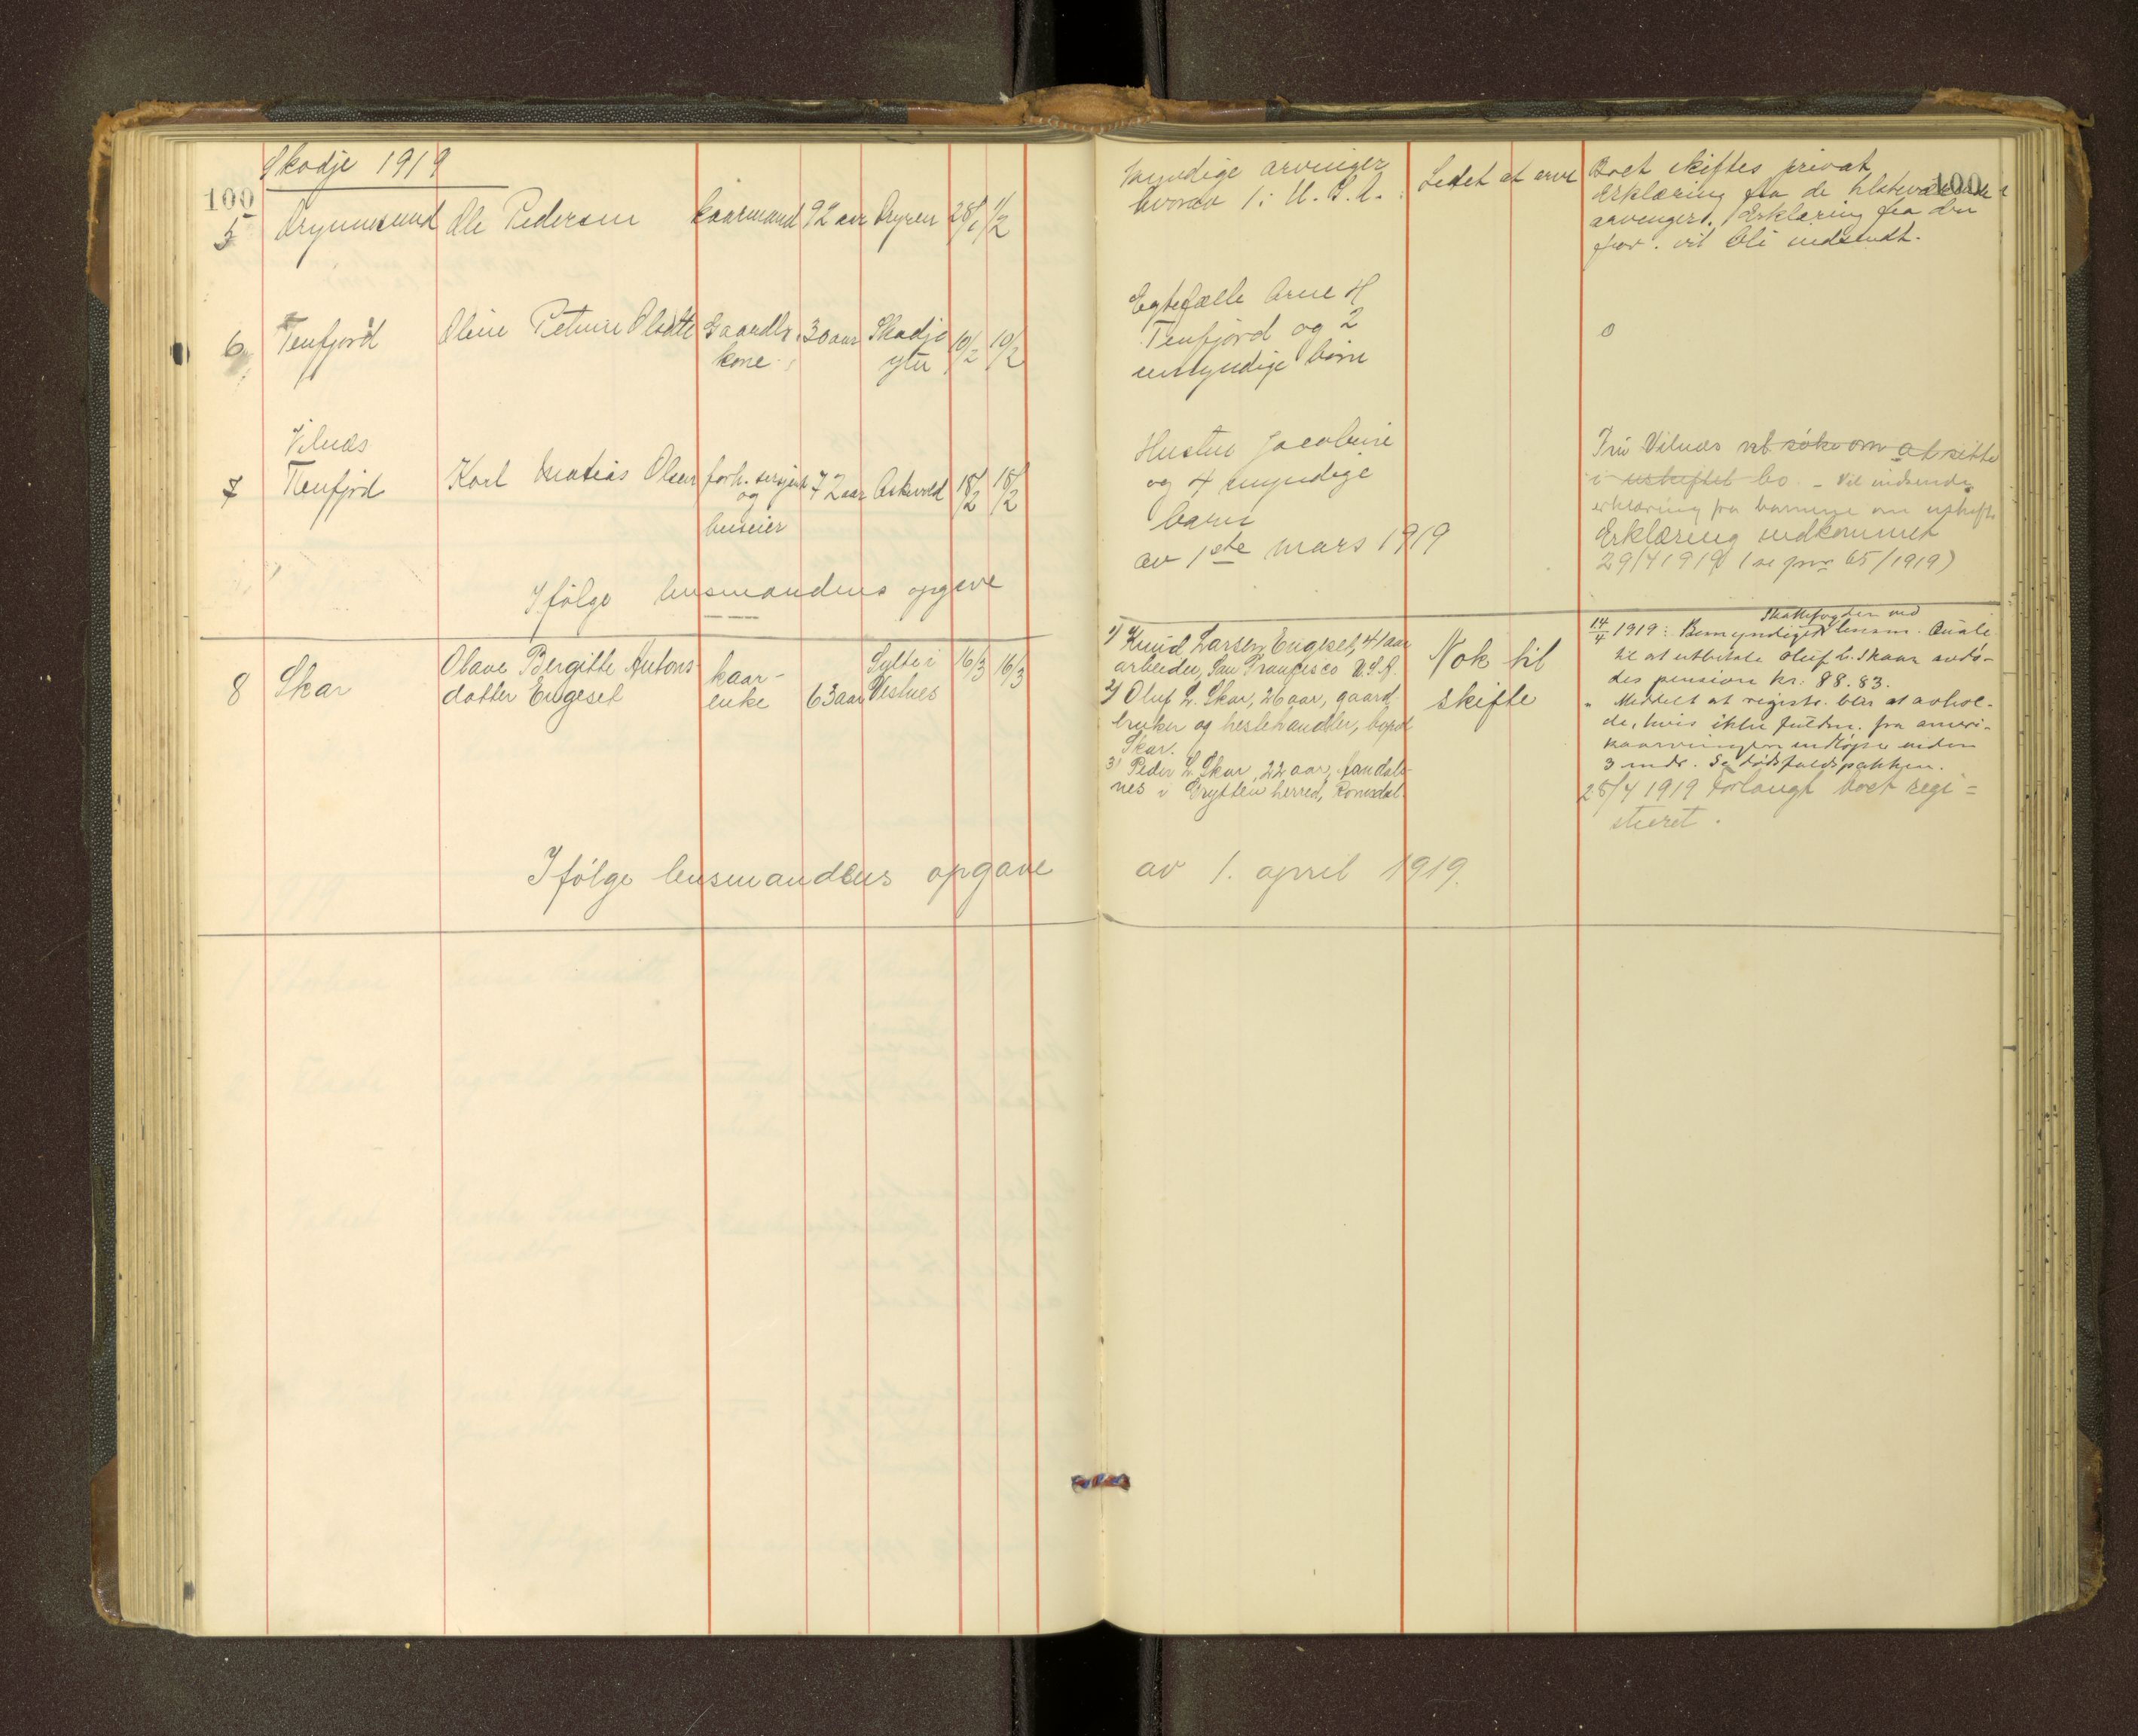 Skodje 1919
100
100
5 Ole Pedersen kaarmand 92 aar Dryen 28/1 1/2
Myndige arvinger
hvorav 1 i U.S.A.
Ledet at arve
Boet skiftes privat
Erklæring fra de
arvinger. Erklæring fra den
fjor. vil bli indsendt.
6 Tenfjord Oline Petrine Olsdtr Gaardbr. 30 aar Skodje 10/2 10/2
kone ytre
Egtefælle Arne H
Tenfjord og 2
umyndige børn
0
Vilnæs
7 Tenfjord Karl Matias Olsen forh. sersjent 72 aar Askevold 18/2 18/2
og
huseier
Hustru Jacobine
og 4 myndige
barn
Fru Vilnæs vil søke om at sitte
i uskiftet bo. – Vil indsende
erklæring fra barnene om uskifte
Erklæring indkommet
29/4 1919 (se pnr 65/1919)
Ifølge lensmandens opgave
av 1ste mars 1919
8 Skar Olave Bergitte Antons-
datter Engeset
kaar-
enke
63 aar
Sylte i
Vestnes
16/3 16/3
1) Knud Larsen Engeset, 41 aar
arbeider, San Francisco U.S.A.
2) Oluf L. Skar, 26 aar, gaard
bruker og hestehandler, bopæl
Skar.
3) Peder L. Skar, 22 aar, Aandals-
nes i Grytten herred, Romsdal.
Nok til
skifte
Skattefogden ved
14/4 1919: Bemyndiget lensm.
til at utbetale Oluf L. Skaar avdø-
des pension kr: 88.83.
" Meddelt at registr. blir at avhol-
de, hvis ikke fuldm. fra ameri-
kaarvingen indløper inden
3 mdr. Se dødsfaldspakken.
28/4 1919 Forlangt boet regi=
streret.
Ifølge lensmandens opgave
av 1. april 1919.